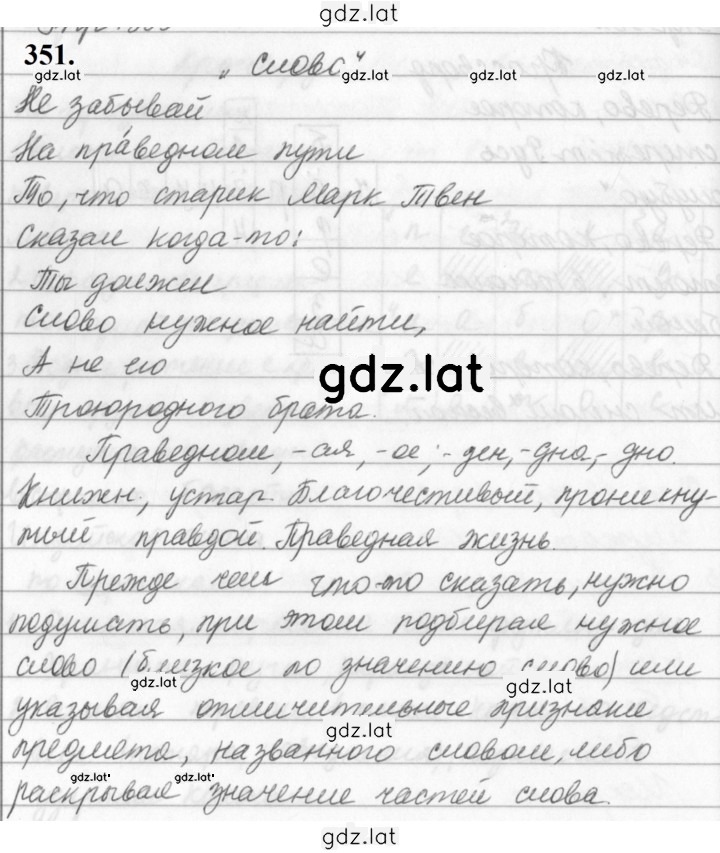 gdz.lat
351.
gdz.lat
„Слово“
gdz.lat
Не забывай
На пра́ведном пути
То, что старик Марк Твен
сказал когда-то:
Ты должен
Слово нужное найти,
А не его
gdz.lat
Троюродного брата.
Праведном, -ая, -ое; -ден, -дна, -дно.
Книжн, устар. Благочестивый, проникну-
тый правдой. Праведная жизнь.
Прежде чем что-то сказать, нужно
подумать, при этом подбирая нужное
слово (близкое по значению слово) или
gdz.lat
gdz.lat
указывая отличительные признаки
gdz.lat
предмета, названного словом, либо
gdz.lat
gdz.lat
раскрывая значение частей слова.
gdz.lat